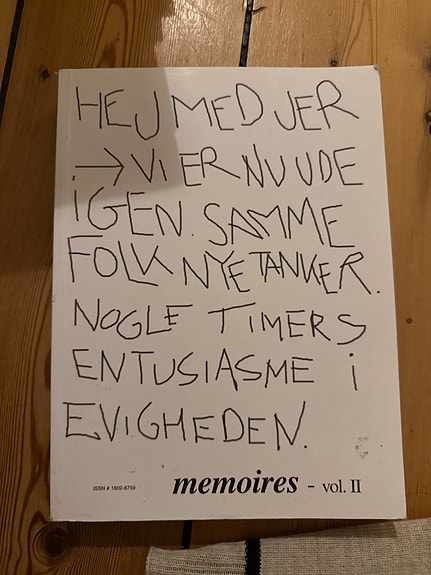 HEJ MED JER
→ VI ER NU UDE
IGEN. SAMME
FOLK NYE TANKER.
NOGLE TIMERS
ENTUSIASME i
EVIGHEDEN.
ISSN # 1602-8759
memoires - vol. II